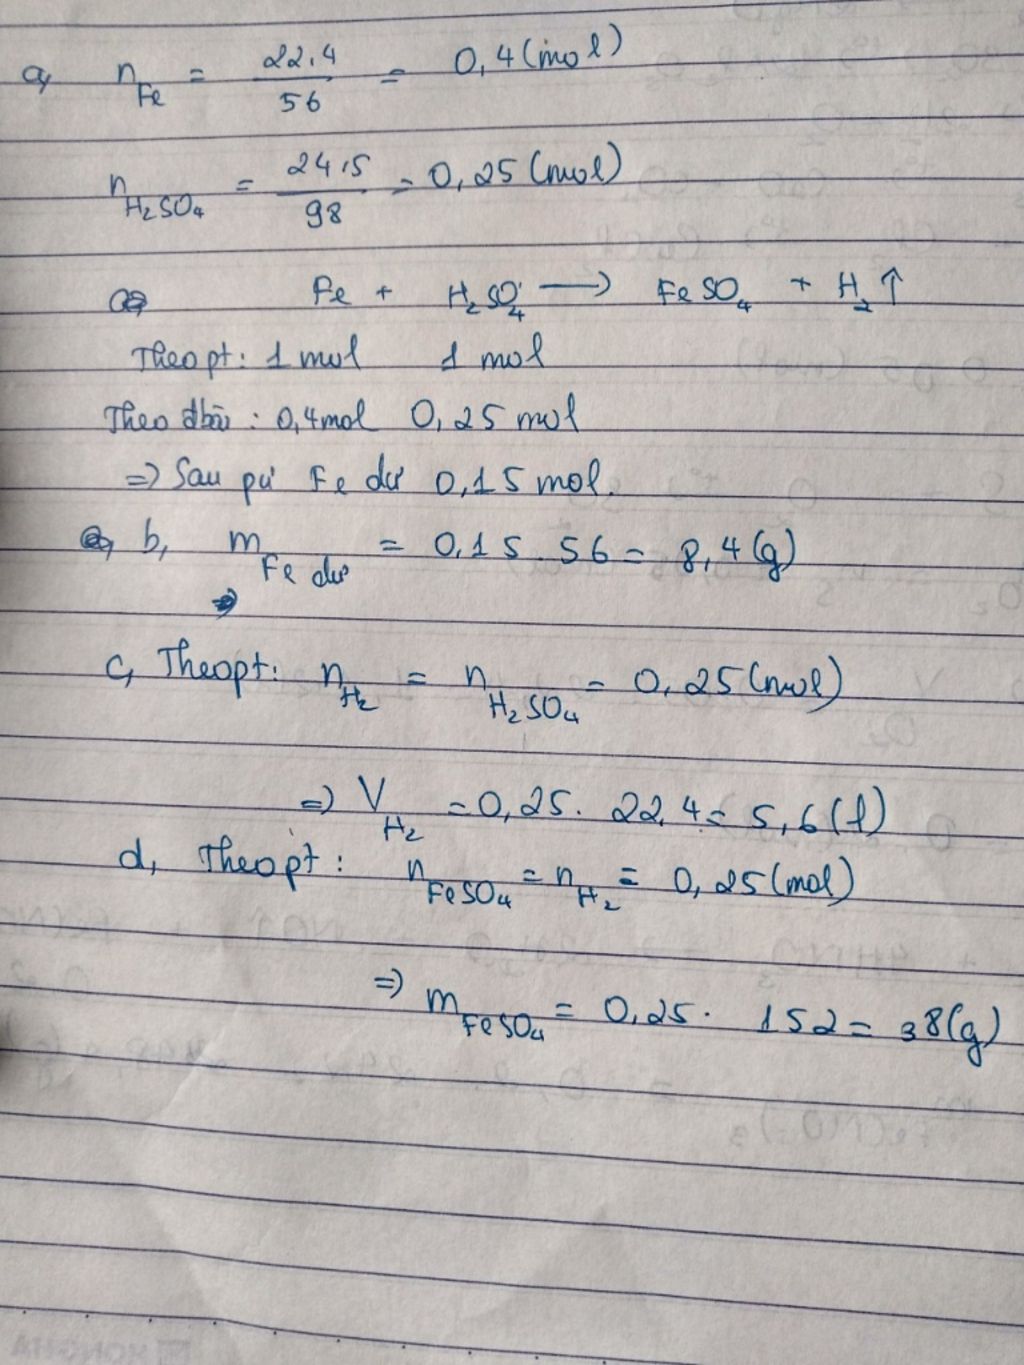 a, n Fe = 22,4 / 56 = 0,4 (mol)
n H₂SO₄ = 24,5 / 98 = 0,25 (mol)
Fe + H₂SO₄ → FeSO₄ + H₂↑
Theo pt: 1 mol 1 mol
Theo đbài: 0,4mol 0,25 mol
=> Sau pứ Fe dư 0,15 mol.
b, m Fe dư = 0,15 . 56 = 8,4 (g)
c, Theo pt: n H₂ = n H₂SO₄ = 0,25 (mol)
=> V H₂ = 0,25 . 22,4 = 5,6 (l)
d, Theo pt: n FeSO₄ = n H₂ = 0,25 (mol)
=> m FeSO₄ = 0,25 . 152 = 38 (g)